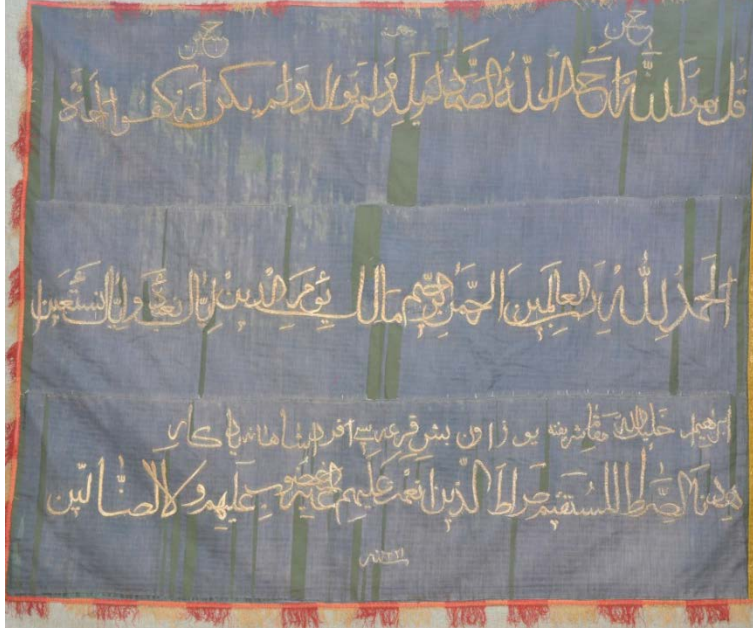 حسن حسين
قل هو الله احد الله الصمد لم يلد ولم يولد ولم يكن له كفوا احد
الحمد لله رب العالمين الرحمن الرحيم مالك يوم الدين اياك نعبد واياك نستعين
ابراهيم خليل الله
هدنا الصراط المستقيم صراط الذين انعمت عليهم غير المغضوب عليهم ولا الضالين
سنه